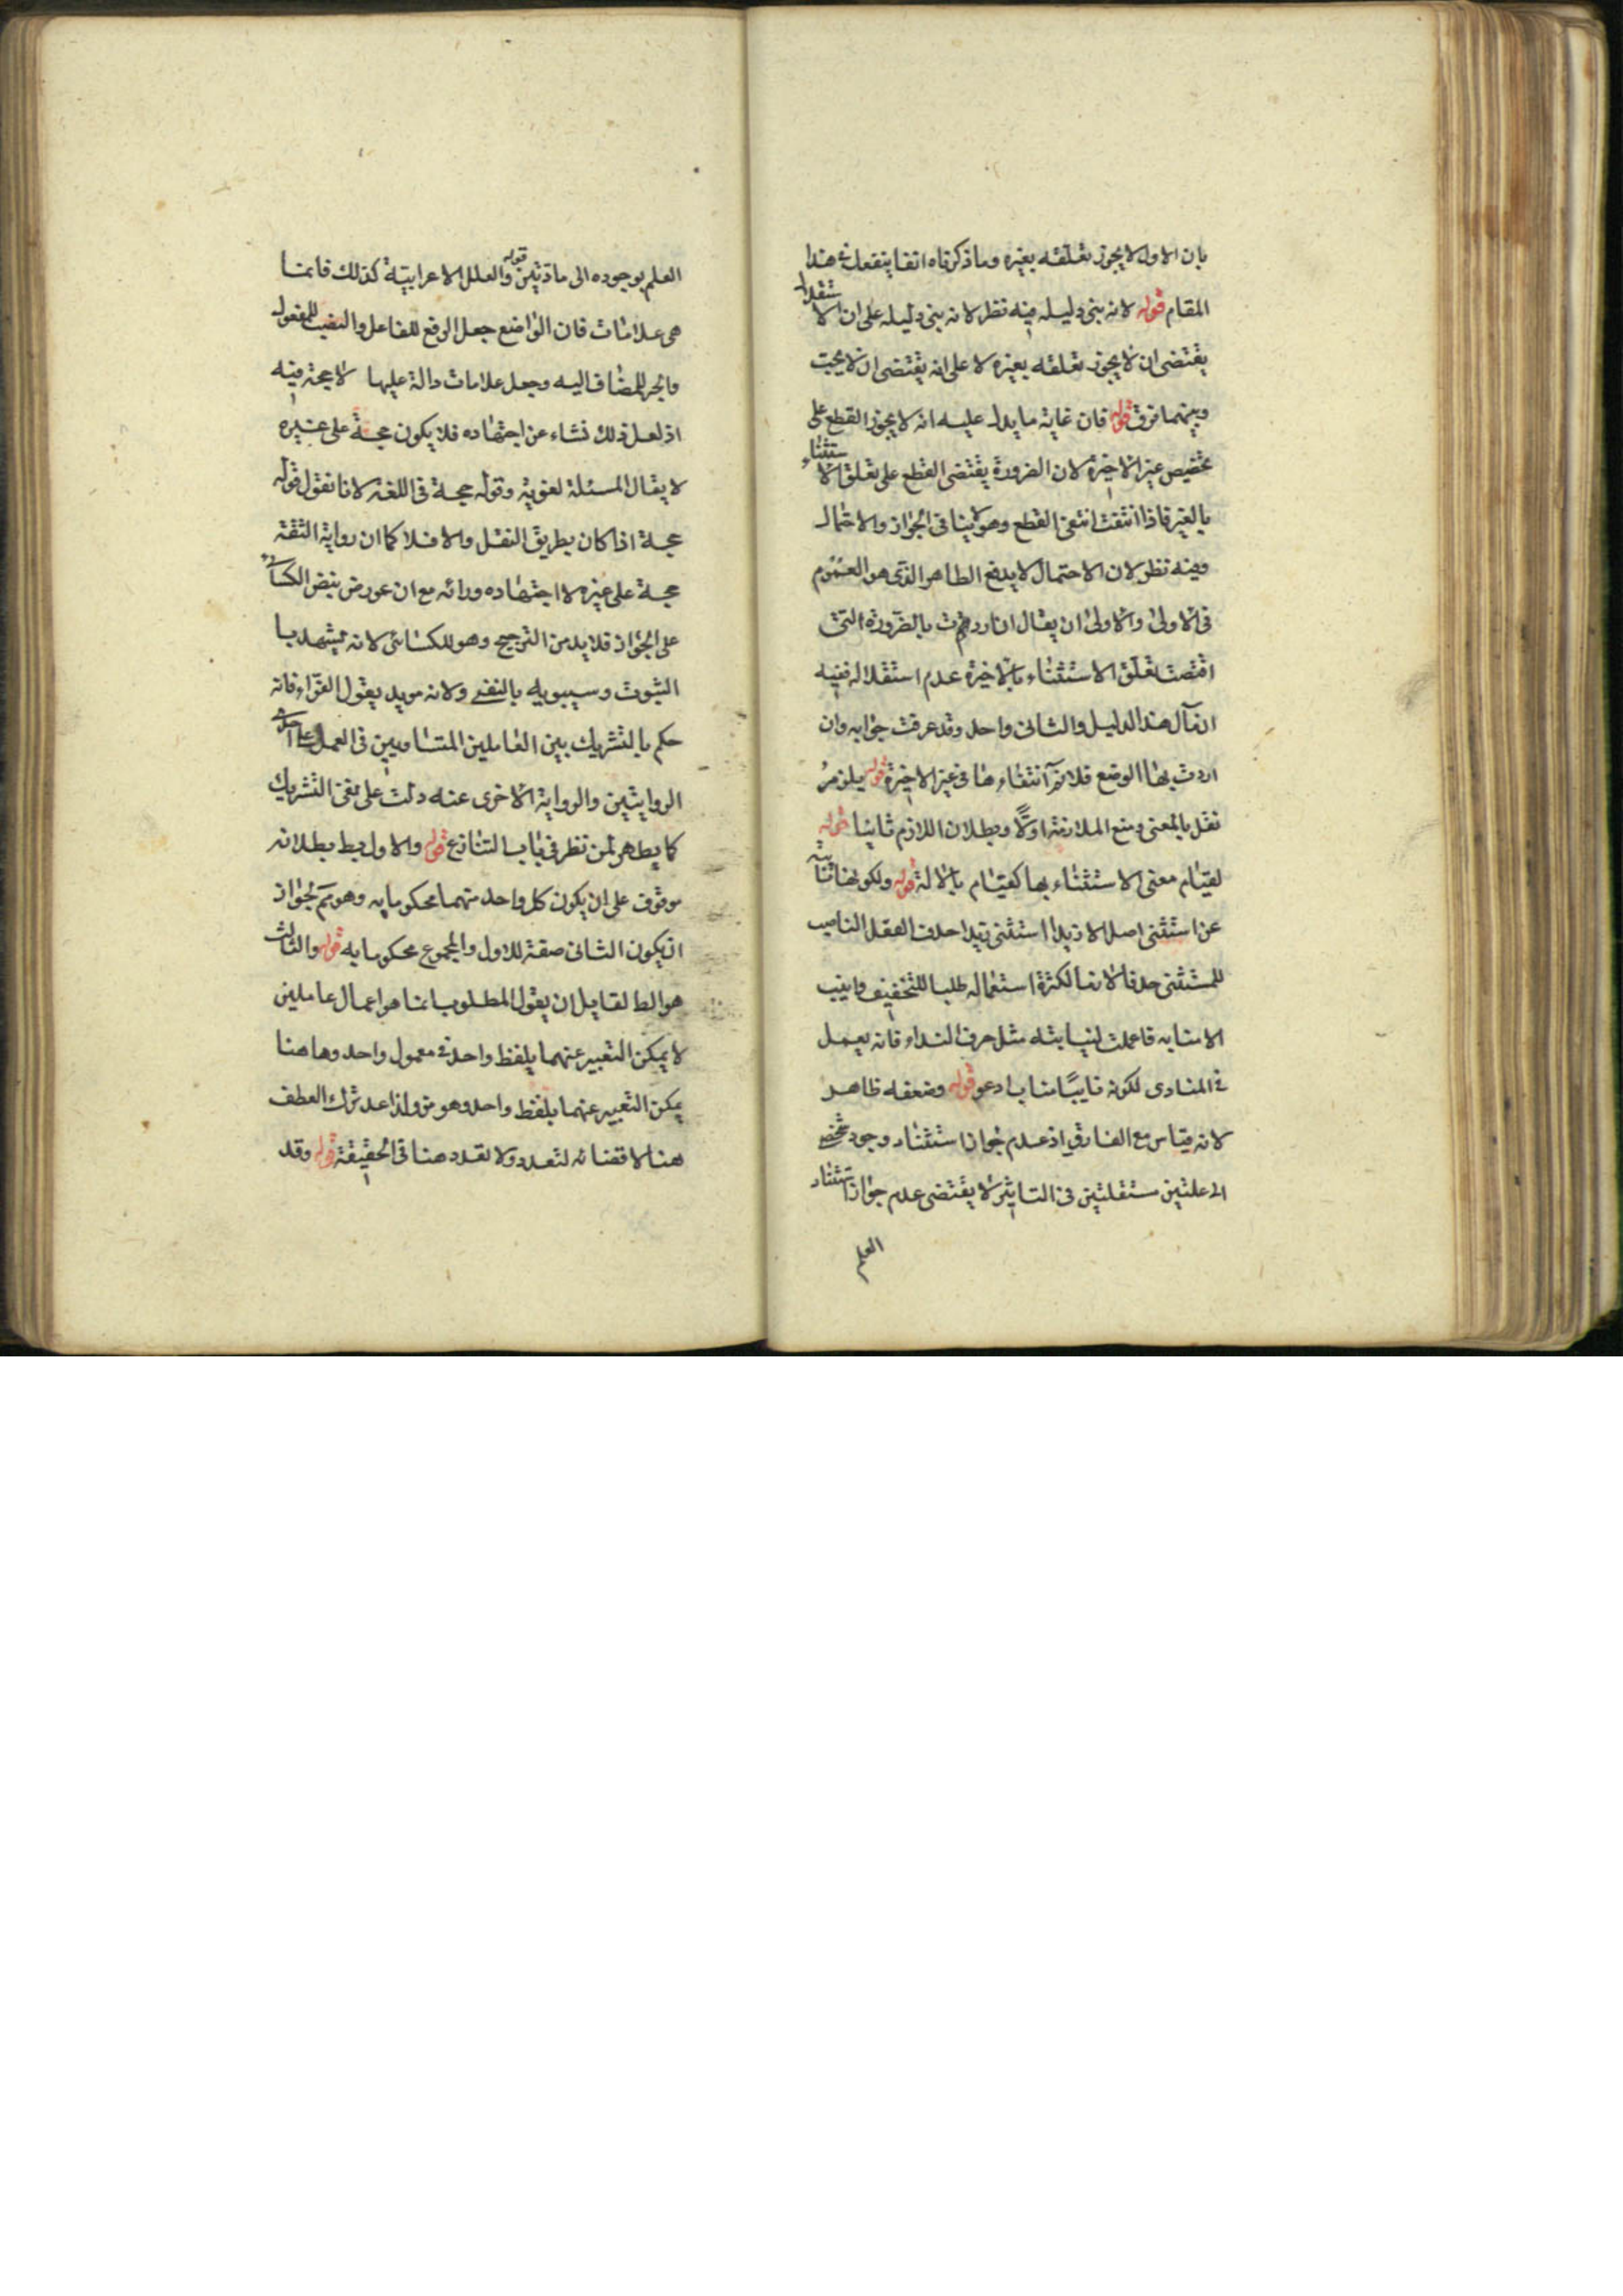 بان الاول لا يجوز تعلقه بغيره وما ذكرناه انفا ينفعك في هذا
المقام قوله لانه بنى دليله فيه نظر لانه بنى دليله على ان الاستقلال
يقتضى ان لا يجوز تعلقه بغيره لا على انه يقتضى ان لا يجب
وبينهما فرق قوله فان غاية ما يدل عليه انه لا يجوز القطع على
تخصيص غير الاخيرة لان الضرورة يقتضى القطع على تعلق الاستثناء
بالغير فاذا انتفت انتفى القطع وهو لا ينافى الجواز والاحتمال
وفيه نظر لان الاحتمال لا يدفع الظاهر الذى هو العموم
فى الاولى والاولى ان يقال ان اردتم بالضرورة التى
اقتضت تعلق الاستثناء بالاخيرة عدم استقلاله ففيه
ان مآل هذا الدليل والثانى واحد وقد عرفت جوابه وان
اردت بها الوضع فلا نم انتفاءها فى غير الاخيرة قوله يلزم
نقل بالمعنى ومنع الملازمة اولًا وبطلان اللازم ثانيا قوله
لقيام معنى الاستثناء بها كقيام بالالة قوله ولكونها نائبة
عن استثنى اصل الا زيدا استثنى زيدا حذف الفعل الناصب
للمستثنى حذفا لازما لكثرة استعماله طلبا للتخفيف وانيب
الا منابه فاعملت لنيابته مثل حرف النداء فانه يعمل
فى المنادى لكونه نايبًا مناب ادعو قوله وضعفه ظاهر
لانه قياس مع الفارق اذ عدم جواز استناد وجود شخص
الى علتين مستقلتين فى التاثير لا يقتضى عدم جواز استناد
العلم
العلم بوجوده الى مادتين قوله والعلل الاعرابية كذلك فانما
هى علامات فان الواضع جعل الرفع للفاعل والنصب للمفعول
والجر للمضاف اليه وجعل علامات دالة عليها لا حجة فيه
اذ لعل ذلك نشاء عن اجتهاده فلا يكون حجة على غيره
لا يقال المسئلة لغوية وقوله حجة فى اللغة لانا نقول قوله
حجة اذا كان بطريق النقل والا فلا كما ان رواية الثقة
حجة على غيره لا اجتهاده ورائه مع ان عورض بنص الكسائى
على الجواز فلا بد من الترجيح وهو للكسائى لانه يشهد با
الثبوت وسيبويه بالنفى ولانه مويد بقول الفراء فانه
حكم بالتشريك بين العاملين المتساويين فى العمل على احدى
الروايتين والرواية الاخرى عنه دلت على نفى التشريك
كما يظهر لمن نظر فى باب التنازع قوله والاول بط بطلانه
موقوف على ان يكون كل واحد منهما محكوما به وهو مم لجواز
ان يكون الثانى صفة للاول والمجموع محكوما به قوله والثالث
هو الط لقايل ان يقول المطلوب انما هو اعمال عاملين
لا يمكن التعبير عنهما بلفظ واحد فى معمول واحد وهاهنا
يمكن التعبير عنهما بلفظ واحد وهو مز ولذا عد ترك العطف
هنا لاقتضائه لتعدد ولا تعدد هنا فى الحقيقة قوله وقد